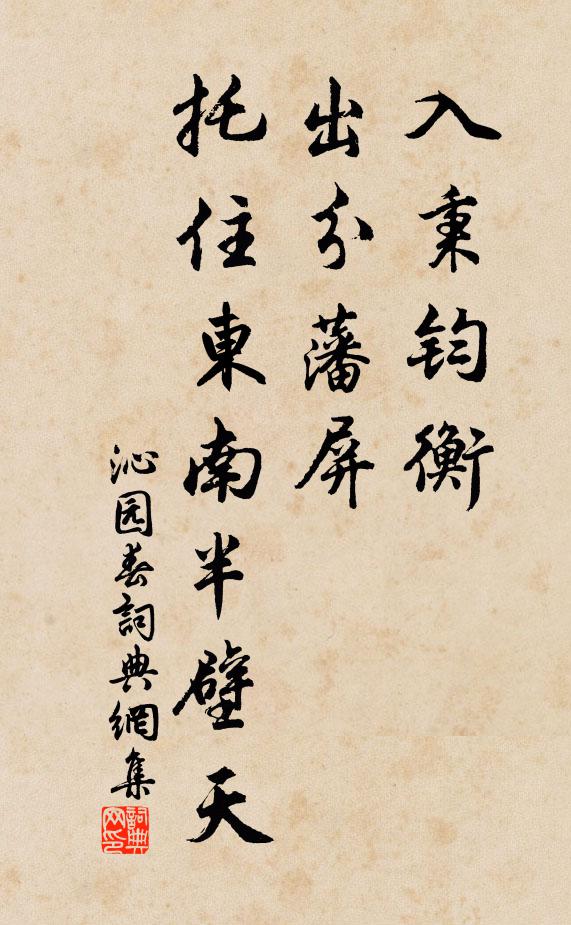 入秉钧衡
出分藩屏
托住東南半壁天
沁园春詞典網集
詞典网印